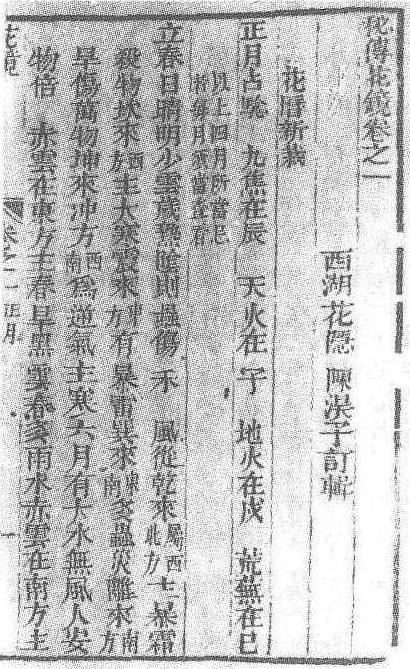 秘傳花鏡卷之一
西湖花隱 陳淏子訂輯
花曆新裁
正月占驗 九焦在辰 天火在子 地火在戌 荒蕪在巳
以上四月所當忌
每月須當查看
立春日晴明少雲歲熟陰則蟲傷禾 風從乾來屬西北方主暴霜
殺物坎來西方主大寒震來東方有暴雷巽來東南多蟲災離來南方
旱傷萬物坤來冲方西南爲逆氣主寒六月有大水無風人安
物倍 赤雲在東方主春旱黑雲春多雨水赤雲在南方主
花鏡 卷之一 正月 一